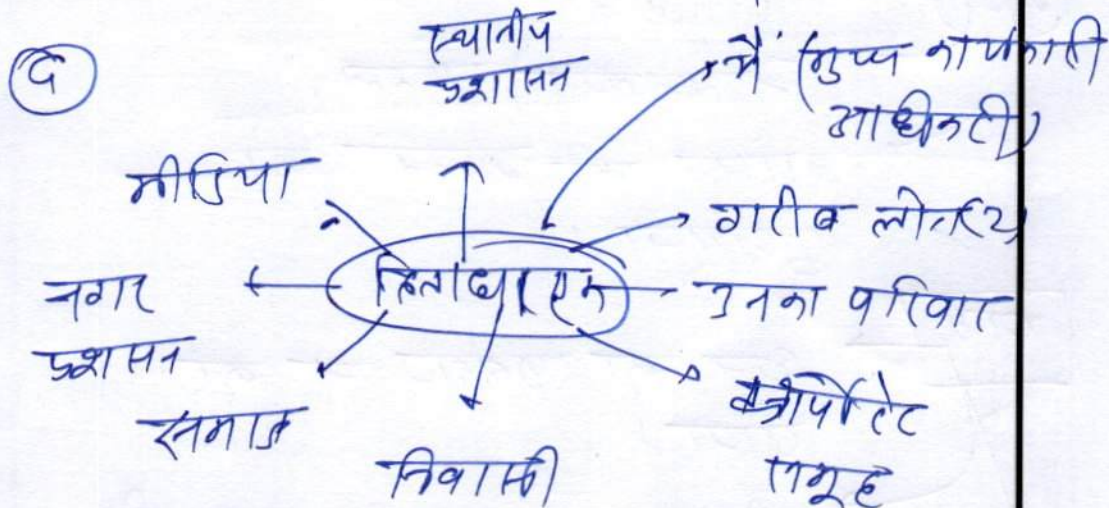 स्थानीय
प्रशासन
मैं (मुख्य कार्यकारी
अधिकारी)
मीडिया
गरीब
हितधारक
उनका परिवार
नगर
प्रशासन
समाज
निवासी
कॉर्पोरेट
समूह